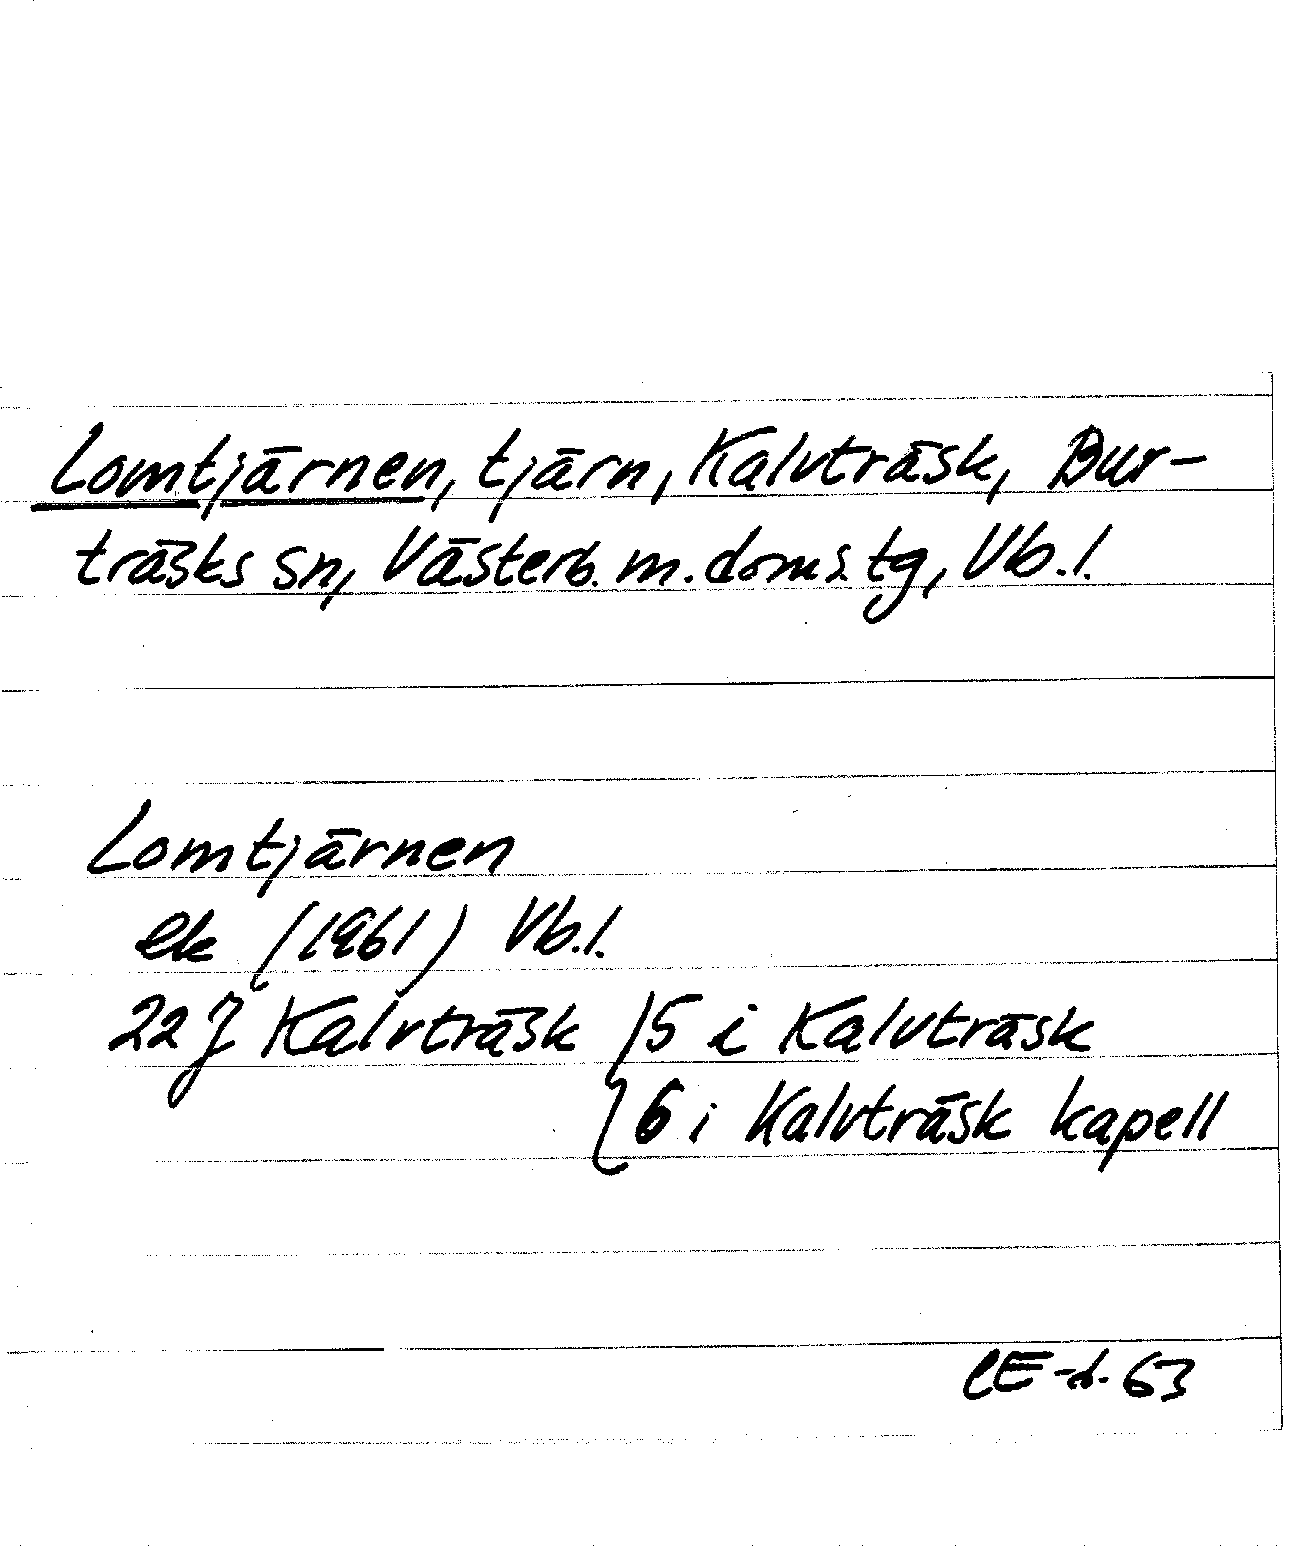 Lomtjärnen, tjärn, Kalvträsk, Bur-
träsks sn, Västerb. m. doms. tg, Vb. l.
Lomtjärnen
ek (1961) Vb. l.
22 J Kalvträsk 5 i Kalvträsk
6 i Kalvträsk kapell
63